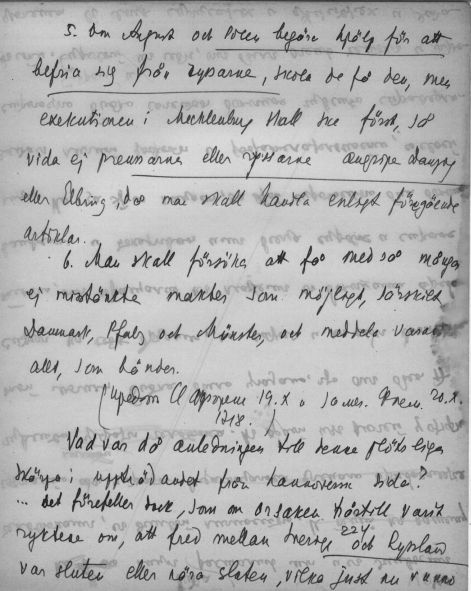 5. Om August och Polen begära hjälp för att
befria sig från ryssarne, skola de få den, men
exekutionen i Mecklenburg skall ske först, så
vida ej preussarne eller ryssarne angripa Danzig
eller Elbing, då man skall handla enligt föregående
artiklar.
6. Man skall försöka att få med så många
ej misstänkta makter som möjligt, särskilt
Danmark, Pfalz och Münster, och meddela varann
allt, som händer.
19.X 20.X.
1718.
Vad var då anledningen till denna plötsliga
skärpa i uppträdandet från hannoversk sida?
... det förefaller dock, som om orsaken härtill varit
ryktena om, att fred mellan Sverige och Ryssland
224.
var sluten eller nära sluten, vilka just nu vunno